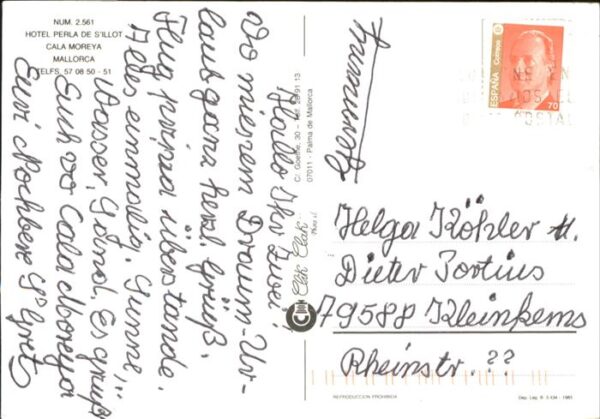 NUM. 2.561
HOTEL PERLA DE S'ILLOT
CALA MOREYA
MALLORCA
TELFS. 57 08 50 - 51
Hallo Ihr Zwei!
Vo mienem Draum-Ur-
laub ganz herzl. Grüß.
Flug prima überstande.
Alles einmolig. Sunne,
Wasser, Strand. Es grüßt
Euch vo Cala Moreya
Euri Nochbere
C/ Goethe, 30 - Telf. 28 91 13
07011 - Palma de Mallorca
Clik Clak
ESPAÑA
Correos
70
Helga Köhler u.
Dieter Portius
79588 Kleinkems
Rheinstr. ??
REPRODUCCION PROHIBIDA